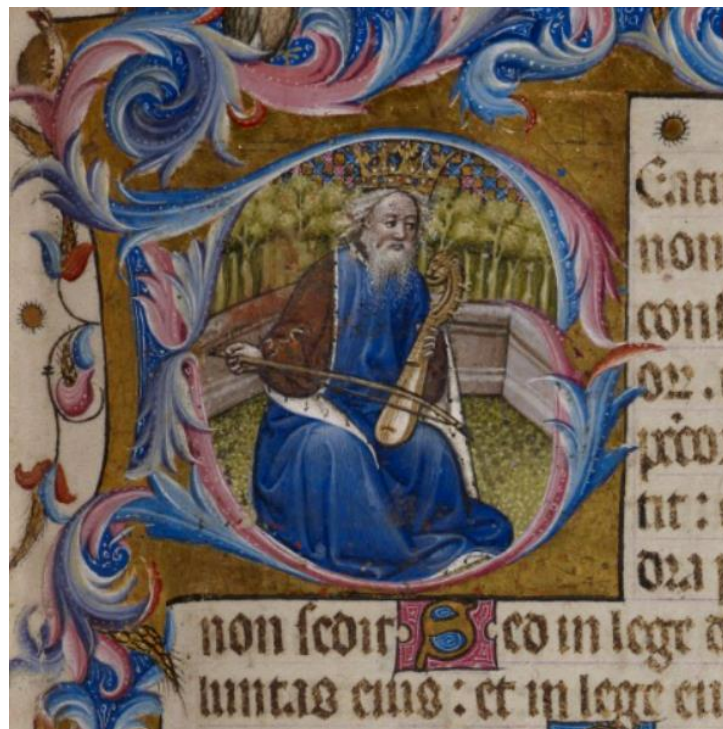 BEatu
non
consi
or .
pcco
tit :
dra
non sedit Sed in lege d
luntas eius : et in lege eiu